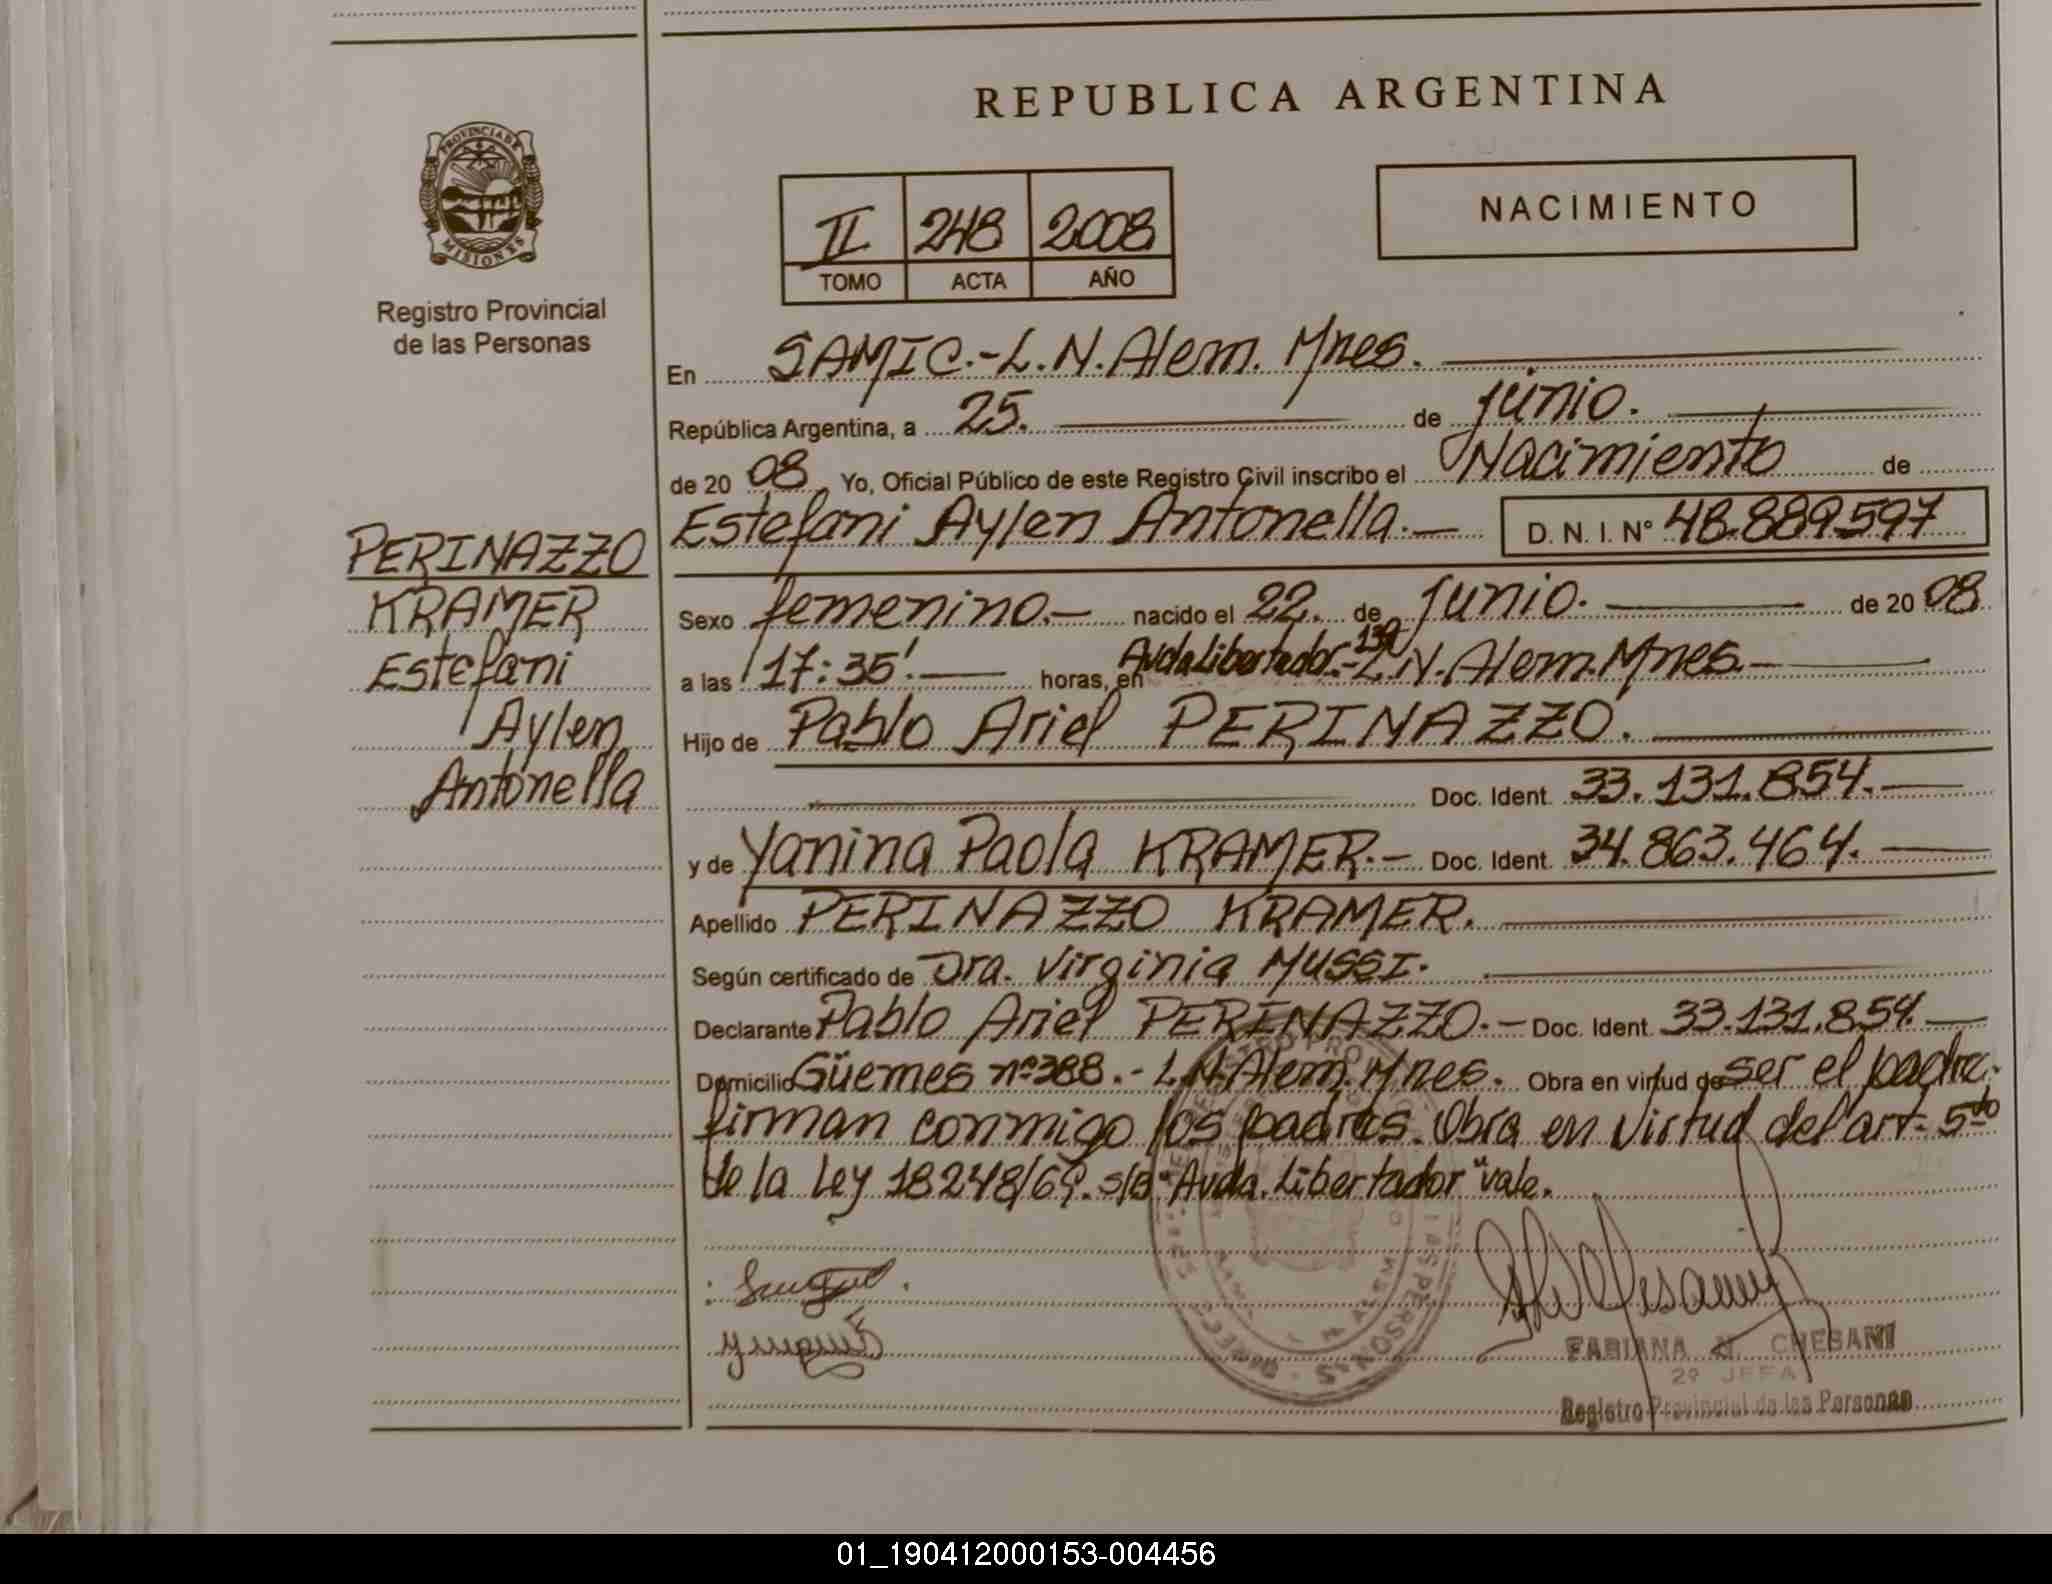 REPUBLICA ARGENTINA
PROVINCIA DE
MISIONES
Registro Provincial
de las Personas
II 248 2008
TOMO ACTA AÑO
NACIMIENTO
En SAMIC.-L.N.Alem. Mnes.
República Argentina, a 25. de junio.
de 2008 Yo, Oficial Público de este Registro Civil inscribo el Nacimiento de
Estefani Aylen Antonella.- D. N. I. N° 48.889.597
PERINAZZO
KRAMER
Estefani
Aylen
Antonella
Sexo femenino.- nacido el 22. de junio. de 2008
a las 17:35'. horas, en Avda Libertador.- L.N.Alem.Mnes.-
Hijo de Pablo Ariel PERINAZZO.
Doc. Ident. 33.131.854.-
y de Yanina Paola KRAMER.- Doc. Ident. 34.863.464.
Apellido PERINAZZO KRAMER.
Según certificado de Dra. Virginia MUSSI.
Declarante Pablo Ariel PERINAZZO.- Doc. Ident. 33.131.854.
Domicilio Güemes nº388.- L.N.Alem.Mnes. Obra en virtud de ser el padre.
firman conmigo los padres. Obra en virtud del art. 5to
de la Ley 18248/69. s/B "Avda. Libertador" vale.
FABIANA N. CHEBANI
2º JEFA
Registro Provincial de las Personas
01_190412000153-004456